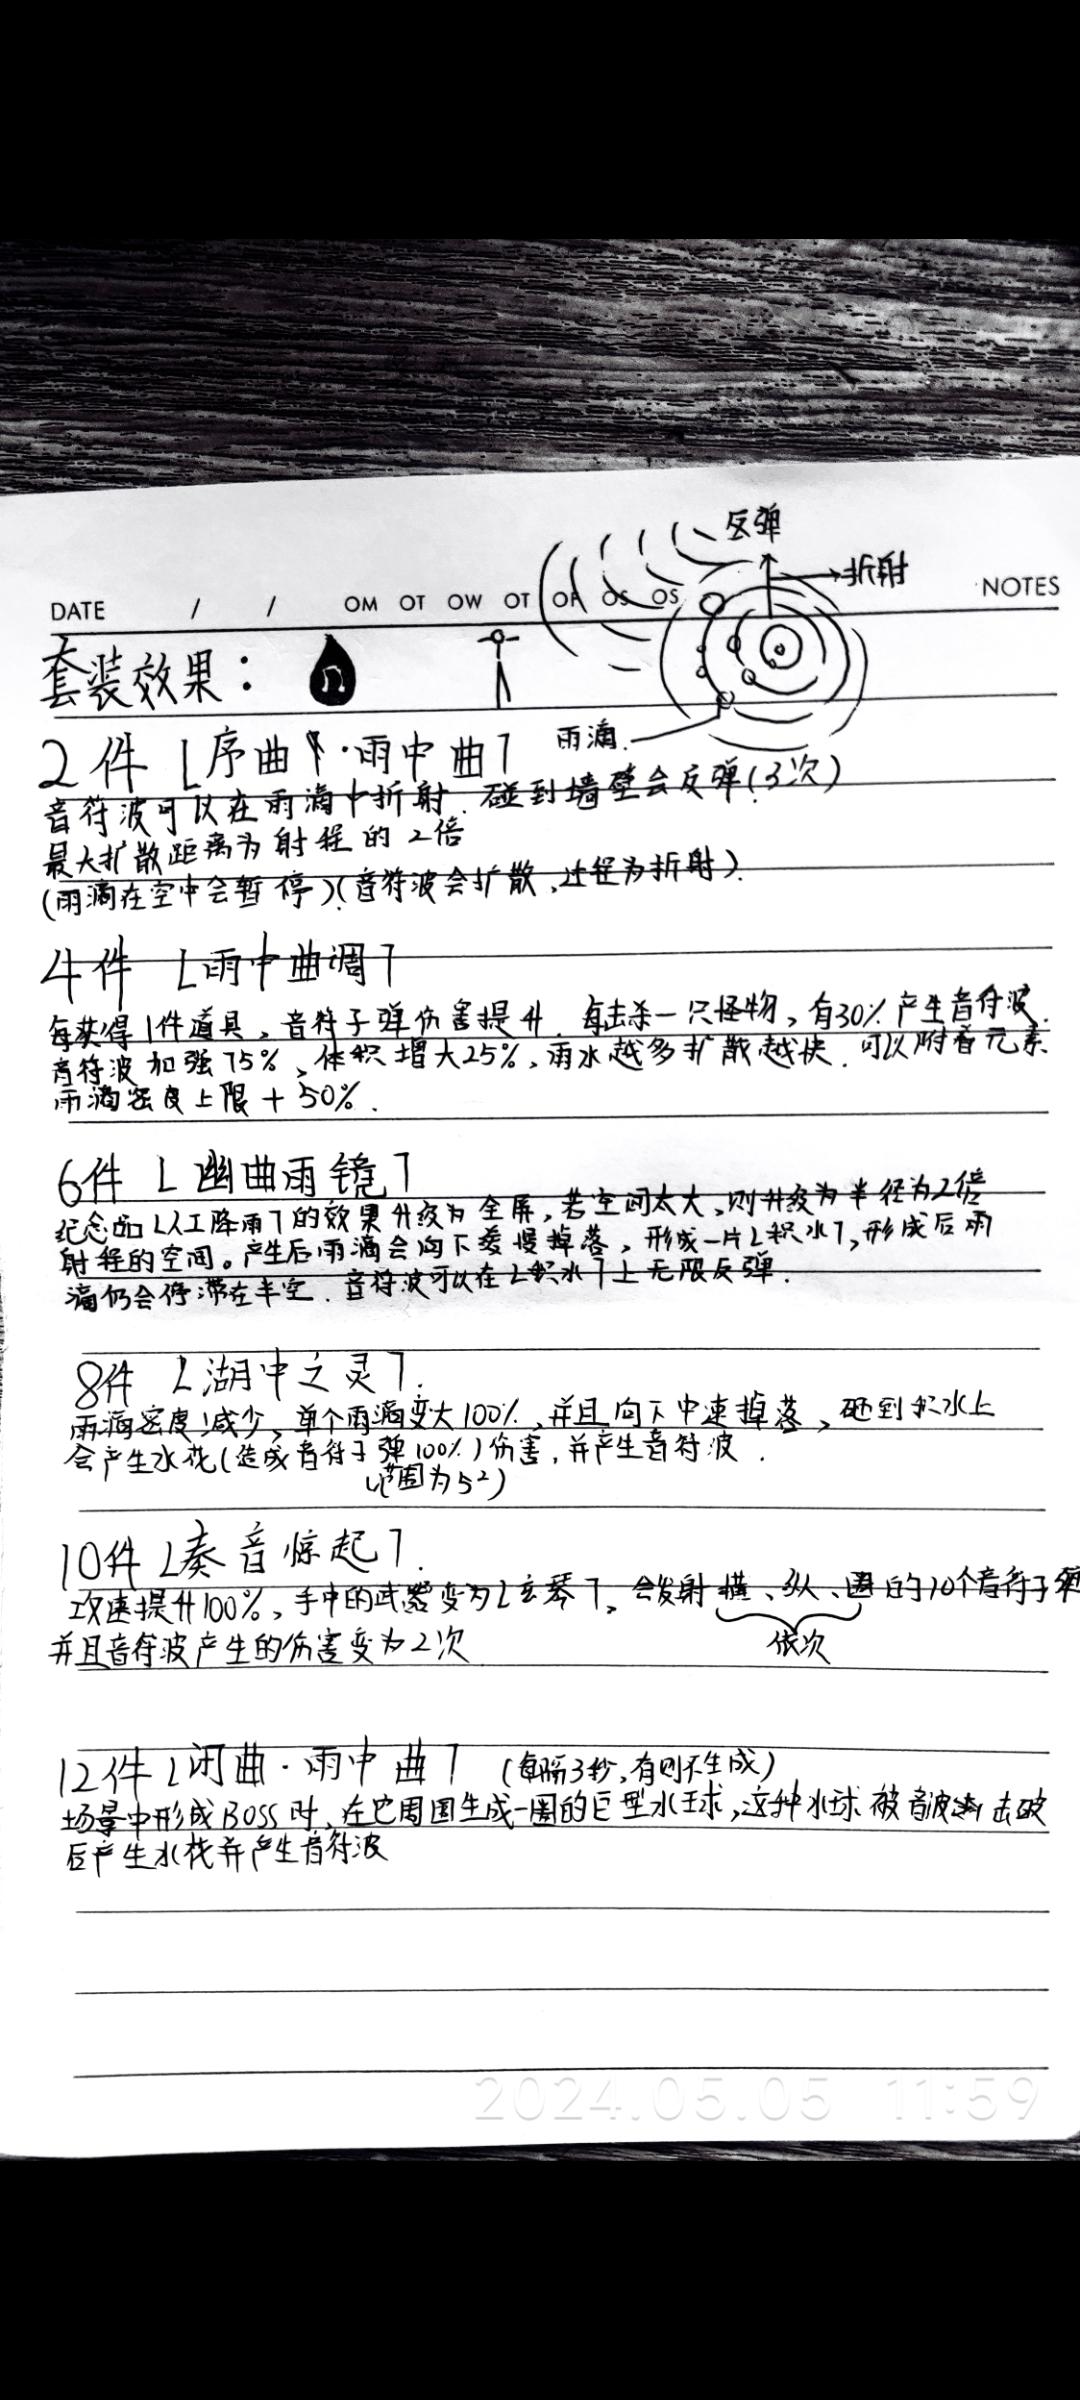 反弹
折射
DATE / / OM OT OW OT OF OS OS NOTES
套装效果：
雨滴
2件 「序曲·雨中曲」
音符波可以在雨滴中折射.碰到墙壁会反弹(3次)
最大扩散距离为射程的2倍
(雨滴在空中会暂停)(音符波会扩散,过径为折射).
4件 「雨中曲调」
每获得1件道具,音符子弹伤害提升.每击杀一只怪物,有30%产生音符波.
音符波加强75%、体积增大25%,雨水越多扩散越快.可以附着元素
雨滴密度上限+50%.
6件 「幽曲雨镜」
纪念品「人工降雨」的效果升级为全屏,若空间太大,则升级为半径为2倍
射程的空间。产生后雨滴会向下缓慢掉落,形成一片「积水」,形成后雨
滴仍会停滞在半空.音符波可以在「积水」上无限反弹.
8件 「湖中之灵」.
雨滴密度减少,单个雨滴变大100%,并且向下中速掉落,砸到积水上
会产生水花(造成音符子弹100%)伤害,并产生音符波.
(范围为5²)
10件「奏音惊起」.
攻速提升100%,手中的武器变为「玄琴」,会发射横、纵、圆的10个音符子弹
依次
并且音符波产生的伤害变为2次
12件「闭曲·雨中曲」 (每隔3秒,有则不生成)
场景中形成BOSS时,在它周围生成一圈的巨型水球,这种水球被音波击破
后产生水花并产生音符波
2024.05.05 11:59